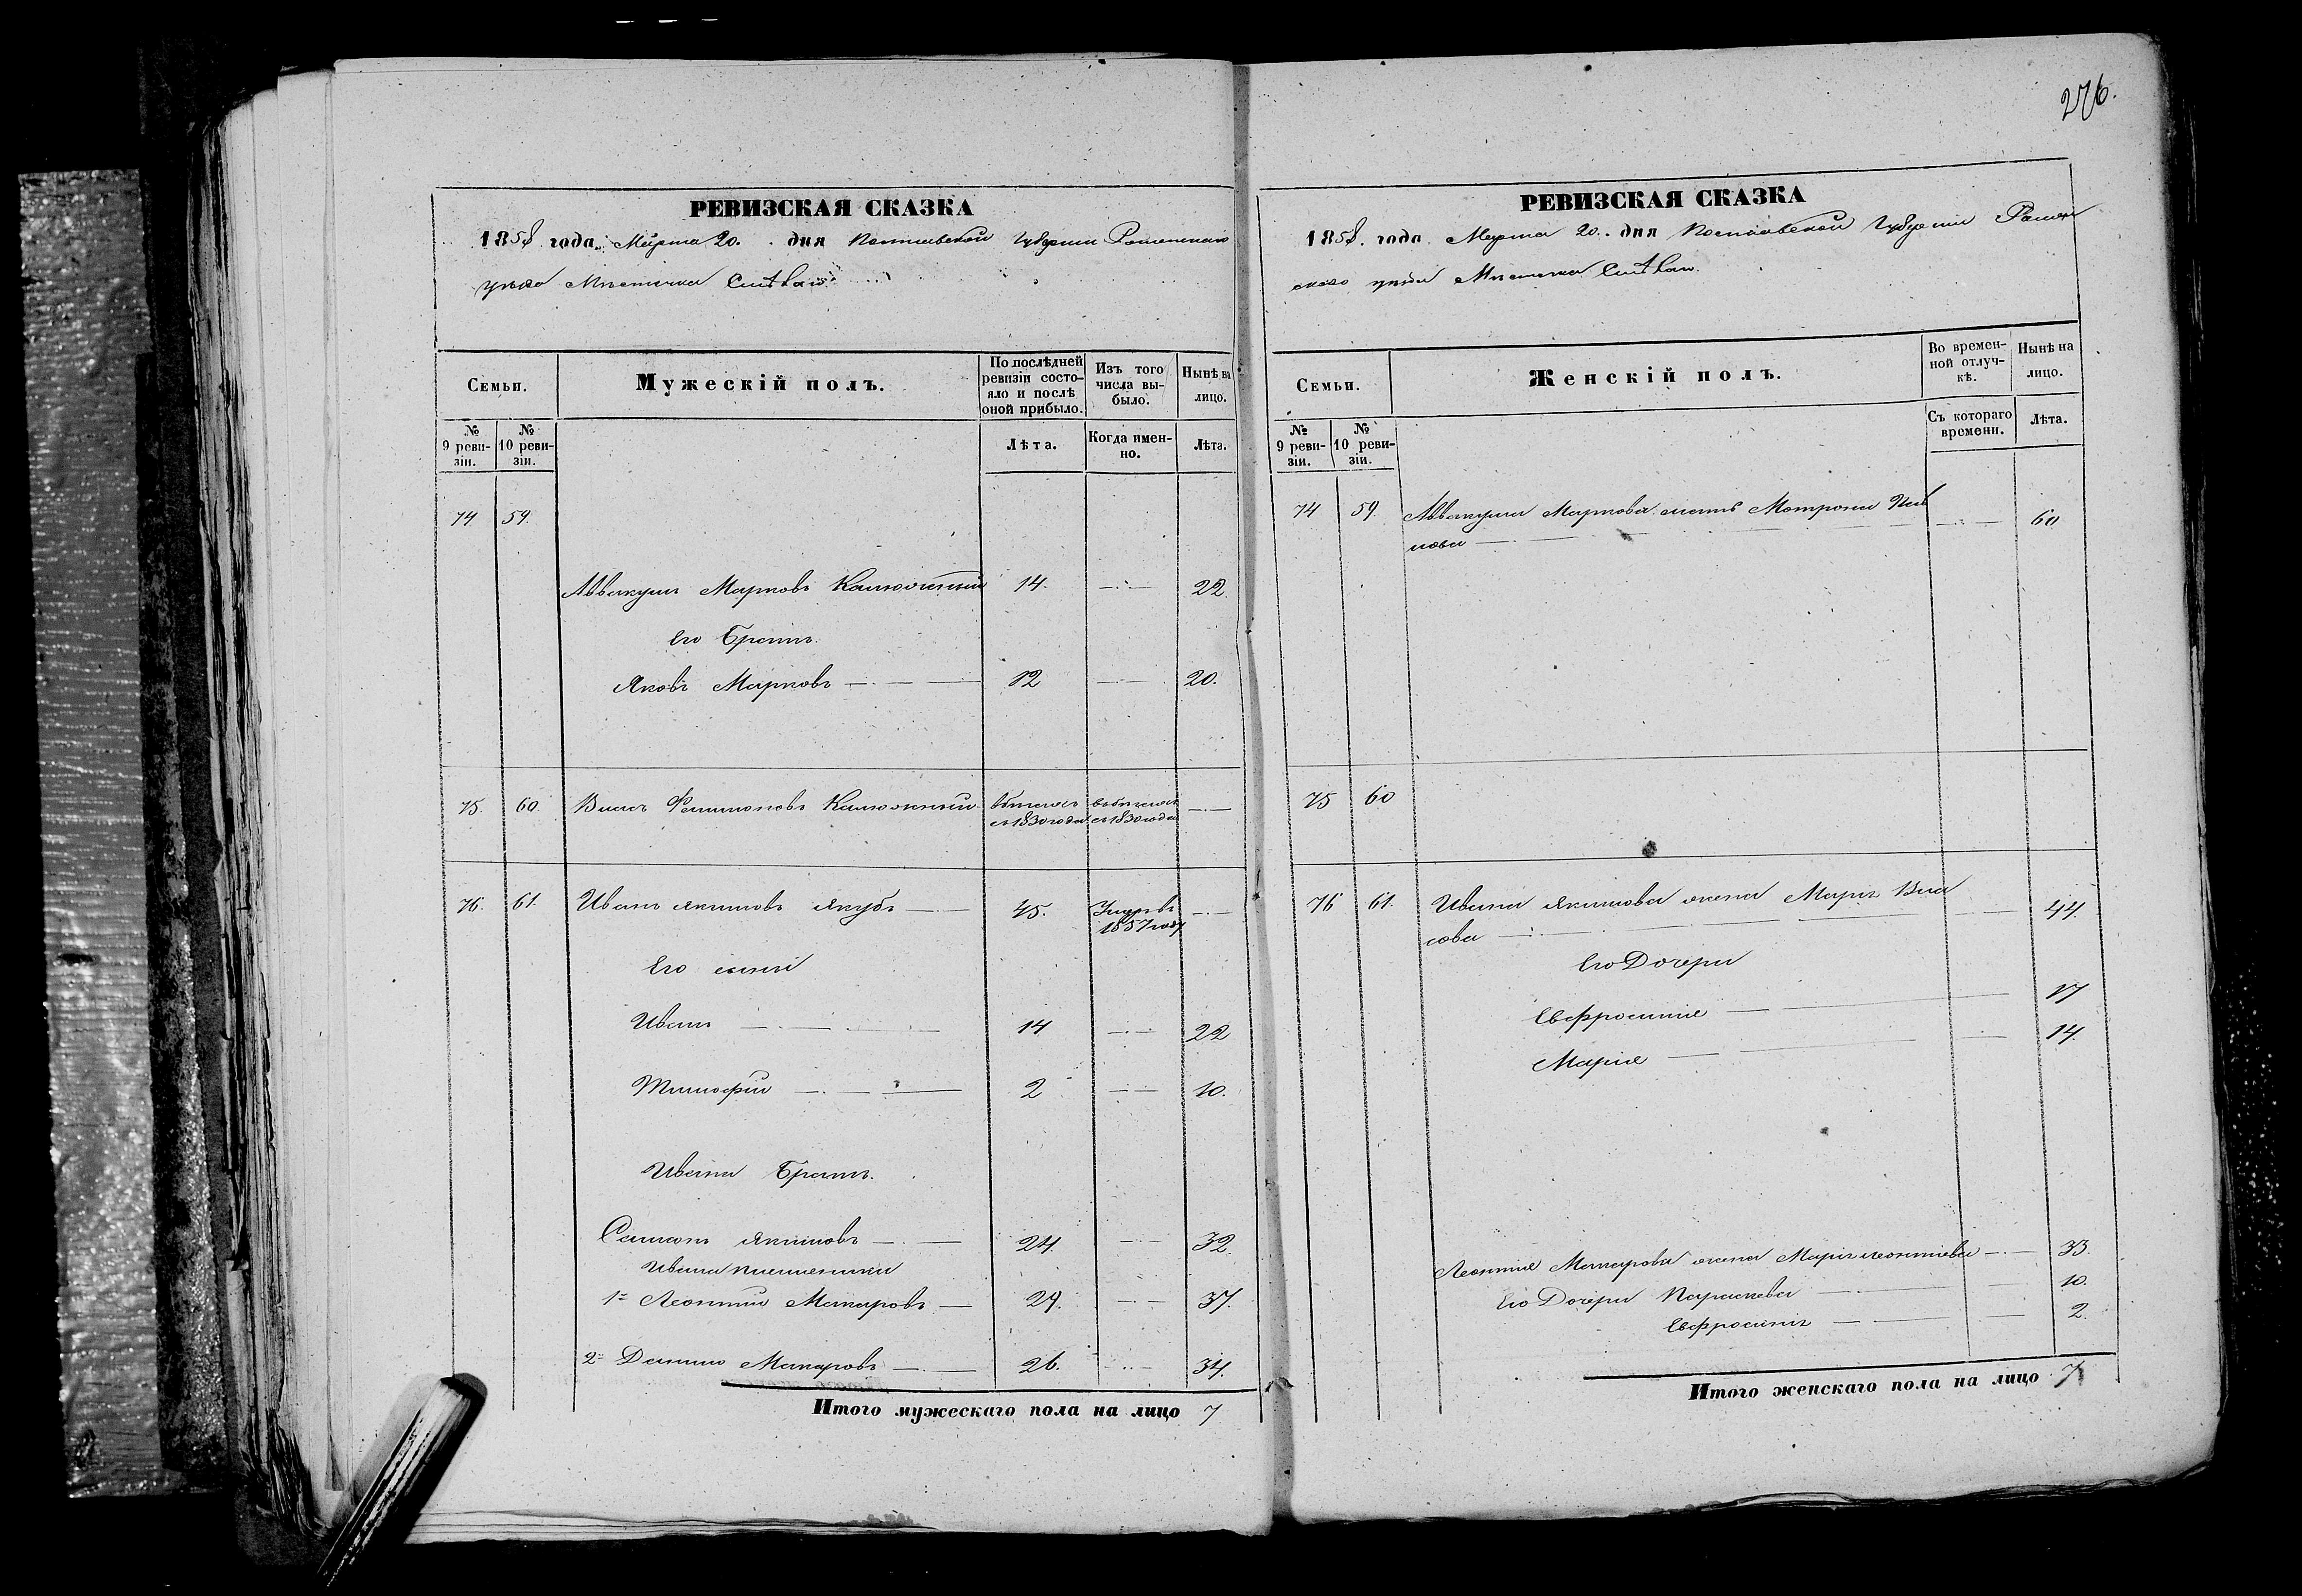 276.
РЕВИЗСКАЯ СКАЗКА
1858 года Марта 20. дня Полтавской Губернии Роменскаго
уезда Местечка
Семьи.
Мужескій полъ.
По послѣдней ревизіи состояло и послѣ оной прибыло.
Изъ того числа выбыло.
Нынѣ на лицо.
№ 9 ревизіи.
№ 10 ревизіи.
Лѣта.
Когда именно.
Лѣта.
74 59.
Аввакумъ Марковъ 14. 22.
Его Братъ
Яковъ Марковъ 12 20.
75. 60. Власъ въ бегахъ съ 1830 года въ бегахъ съ 1830 года
76. 61. Иванъ Якимовъ Якубъ 45. Умеръ въ 1857 году
Его сыны
Иванъ 14 22
Тимофій 2 10.
Ивана Братъ.
Якимовъ 24. 32.
Ивана племяники
1 Леонтий Макаровъ 29. 37.
2 Данило Макаровъ 26. 34.
Итого мужескаго пола на лицо 7
РЕВИЗСКАЯ СКАЗКА
1858. года Марта 20. дня Полтавской Губернии Ромен
скаго уезда Местечка
Семьи.
Женскій полъ.
Во временной отлучкѣ.
Нынѣ на лицо.
№ 9 ревизіи.
№ 10 ревизіи.
Съ котораго времени.
Лѣта.
74 59. Аввакума Маркова мать Мотрона
нова 60
75 60
76 61. Ивана Якимова жена Марія Вла
сова 44.
Его Дочери
Евфросинія 17
Марія 14.
Леонтія Макарова жена Марія Леонтіева 33.
Его Дочери Параскева 10.
Евфросинія 2.
Итого женскаго пола на лицо 7